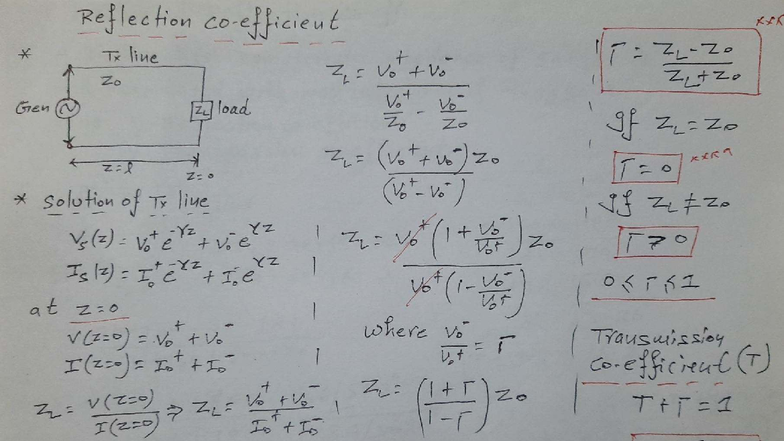 Reflection co-efficient
*
Tx line
Z₀
Gen
Z_L load
z=l
z=0
* Solution of Tx line
V_s(z) = V₀⁺e^-γz + V₀⁻e^γz
I_s(z) = I₀⁺e^-γz + I₀⁻e^γz
at z=0
V(z=0) = V₀⁺ + V₀⁻
I(z=0) = I₀⁺ + I₀⁻
Z_L = V(z=0) / I(z=0) ⇒ Z_L = (V₀⁺ + V₀⁻) / (I₀⁺ + I₀⁻)
Z_L = (V₀⁺ + V₀⁻) / (V₀⁺/Z₀ - V₀⁻/Z₀)
Z_L = (V₀⁺ + V₀⁻) Z₀ / (V₀⁺ - V₀⁻)
Z_L = V₀⁺ (1 + V₀⁻/V₀⁺) Z₀ / V₀⁺ (1 - V₀⁻/V₀⁺)
where V₀⁻/V₀⁺ = Γ
Z_L = ((1 + Γ) / (1 - Γ)) Z₀
Γ = (Z_L - Z₀) / (Z_L + Z₀)
If Z_L = Z₀
Γ = 0
If Z_L ≠ Z₀
Γ > 0
0 ≤ Γ ≤ 1
Transmission
co-efficient (T)
T + Γ = 1